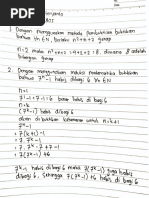 1. Dengan menggunakan metode pembuktian buktikan
bahwa ∀n ∈ N, berlaku n²+n+2 genap
n=2 maka n²+n+2 = 4+2+2 = 8, dimana 8 adalah
bilangan genap.
2. Dengan menggunakan induksi matematika buktikan
bahwa 7ⁿ-1 habis dibagi 6 ∀n ∈ N
n=1
7¹-1 = 7-1 = 6 benar habis di bagi 6
n=k
(7ᵏ-1) habis di bagi 6
akan di buktikan kebenaran untuk n=k+1
7ᵏ⁺¹-1
= 7(7ᵏ)-1
= 7(7ᵏ-1)+7-1
= 7(7ᵏ-1)+6
7ᵏ-1 habis dibagi 6 maka 7(7ᵏ-1) juga habis
dibagi 6, sehingga 7(7ᵏ-1)+6 habis dibagi 6